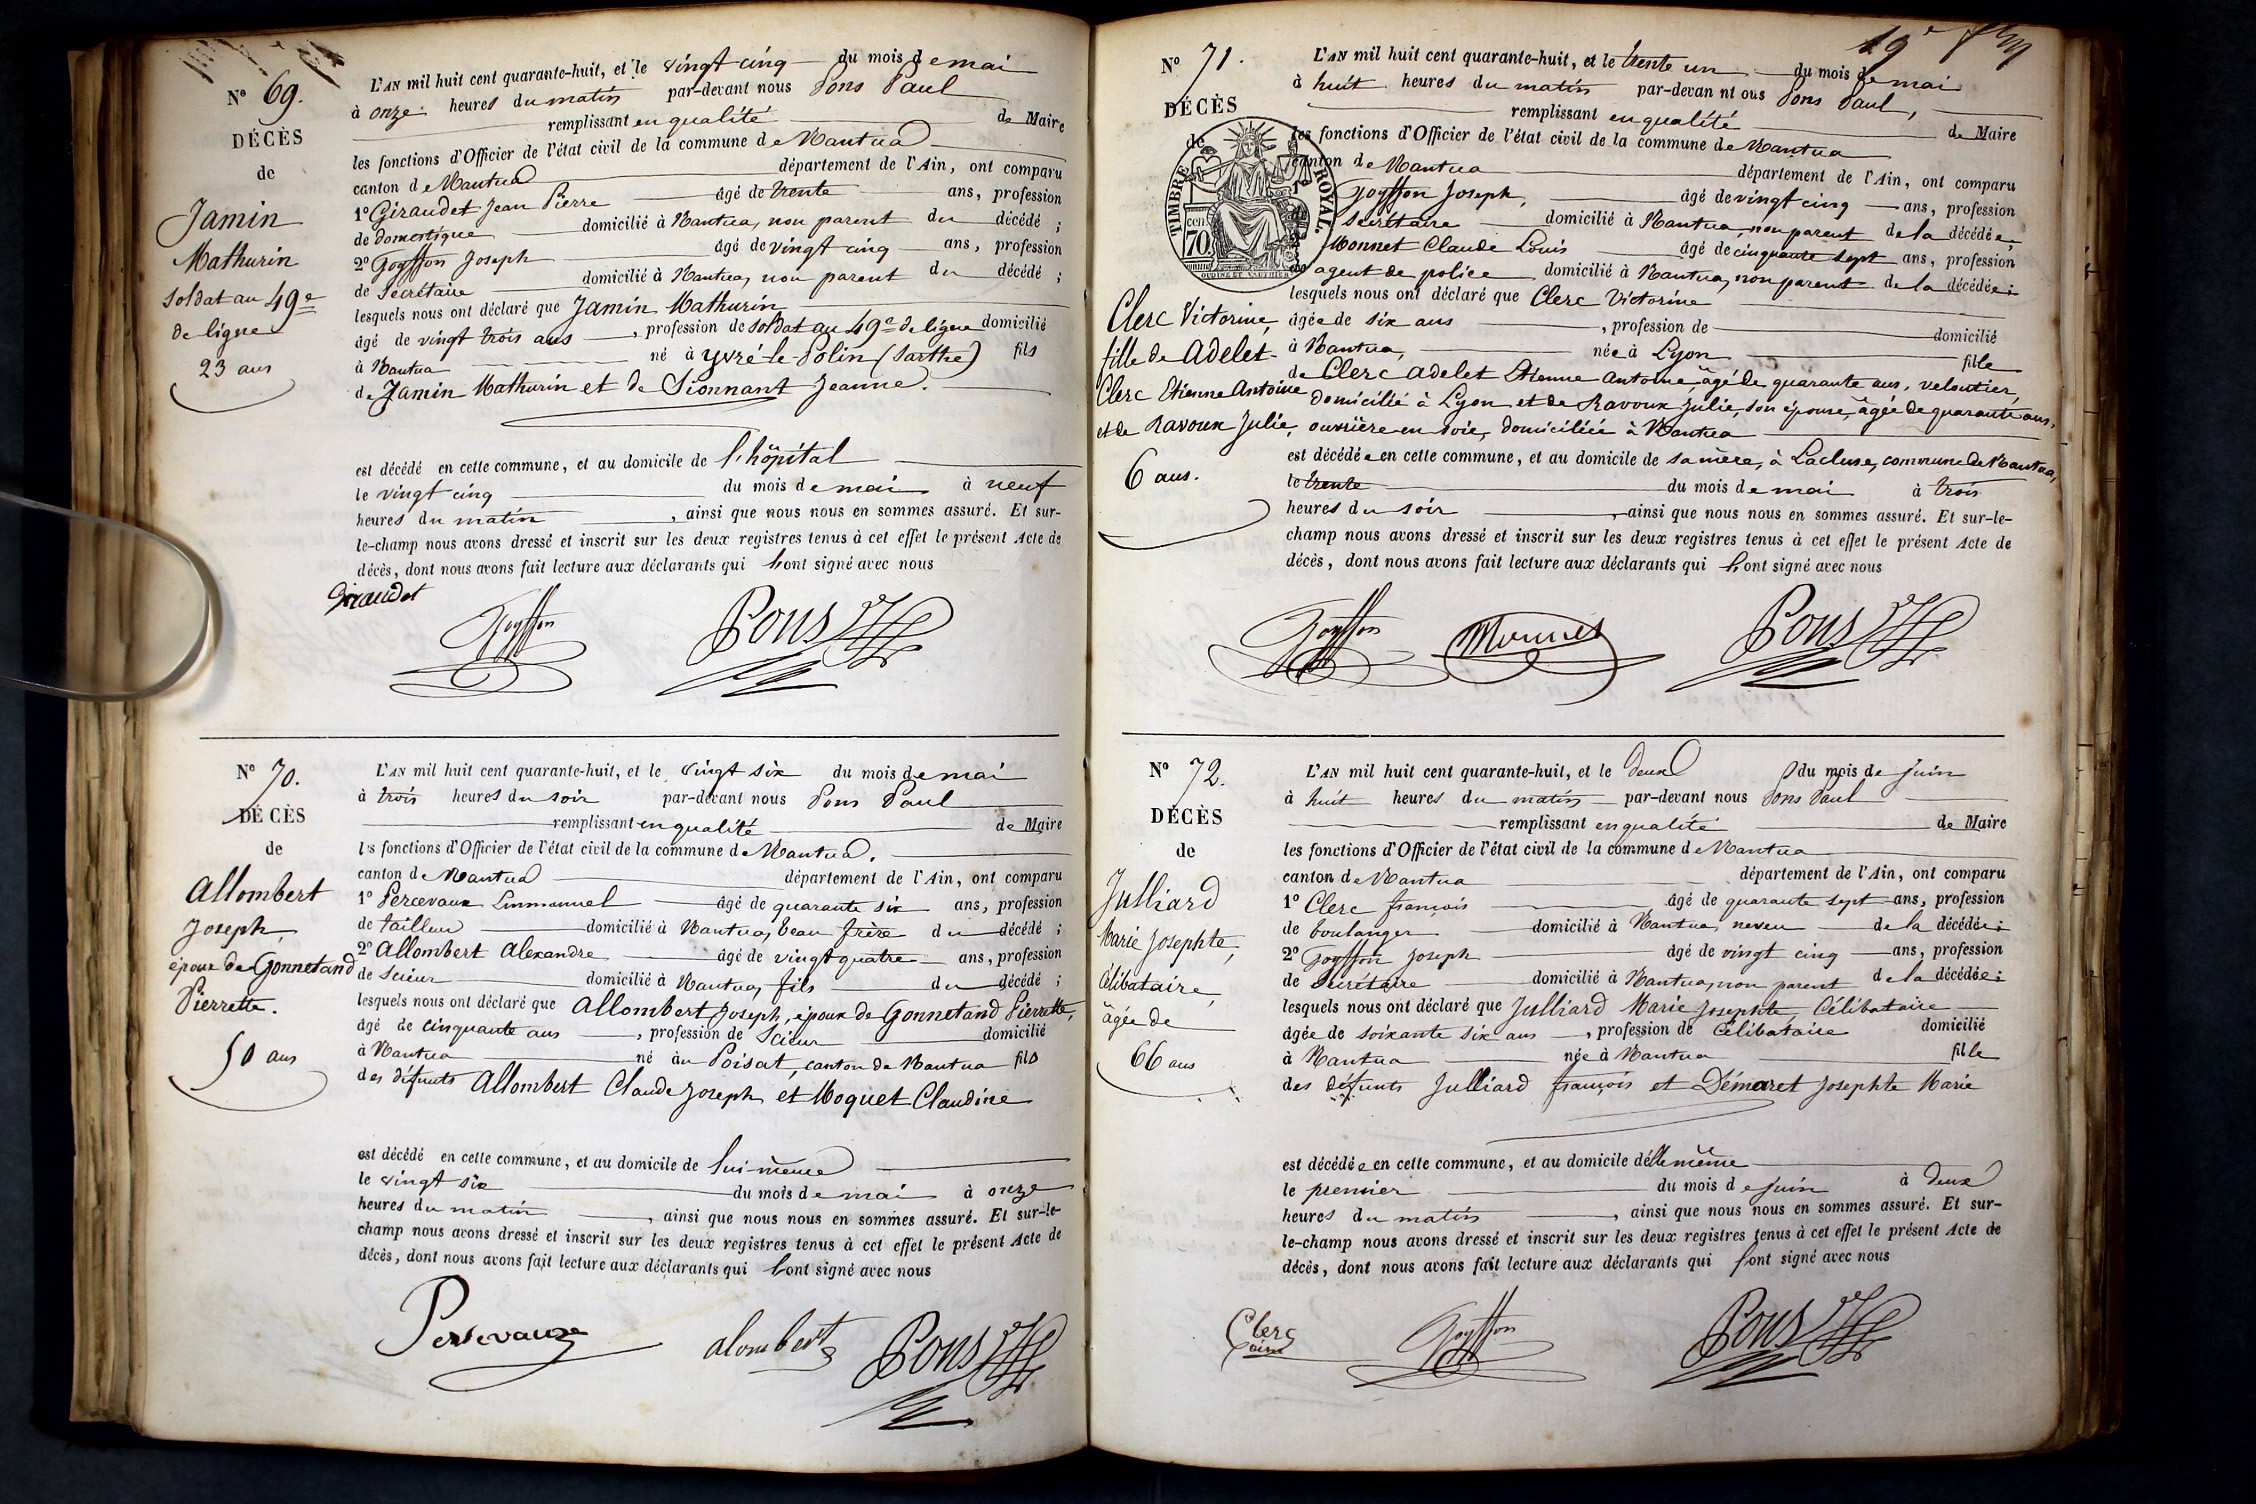 N° 69.
DÉCÈS
de
Jamin
Mathurin
soldat au 49e
de ligne
23 ans
L'AN mil huit cent quarante-huit, et le vingt cinq du mois de mai
à onze heures du matin par-devant nous Pons Paul
remplissant en qualité de Maire
les fonctions d'Officier de l'état civil de la commune de Nantua
canton de Nantua département de l'Ain, ont comparu
1° Giraudet Jean Pierre âgé de trente ans, profession
de domestique domicilié à Nantua, non parent du décédé ;
2° Goyffon Joseph âgé de vingt cinq ans, profession
de Secrétaire domicilié à Nantua, non parent du décédé ;
lesquels nous ont déclaré que Jamin Mathurin
âgé de vingt trois ans, profession de soldat au 49e de ligne domicilié
à Nantua né à Yvré-le-Polin (Sarthe) fils
de Jamin Mathurin et de Sionnant Jeanne.
est décédé en cette commune, et au domicile de l'hôpital
le vingt cinq du mois de mai à neuf
heures du matin, ainsi que nous nous en sommes assuré. Et sur-
le-champ nous avons dressé et inscrit sur les deux registres tenus à cet effet le présent Acte de
décès, dont nous avons fait lecture aux déclarants qui l'ont signé avec nous
Giraudet
Goyffon Pons
N° 70.
DÉCÈS
de
Allombert
Joseph,
époux de Gonnetand
Pierrette.
50 ans
L'AN mil huit cent quarante-huit, et le vingt six du mois de mai
à trois heures du soir par-devant nous Pons Paul
remplissant en qualité de Maire
les fonctions d'Officier de l'état civil de la commune de Nantua.
canton de Nantua département de l'Ain, ont comparu
1° Percevaux Emmanuel âgé de quarante six ans, profession
de tailleur domicilié à Nantua, beau frère du décédé ;
2° Allombert Alexandre âgé de vingt quatre ans, profession
de scieur domicilié à Nantua, fils du décédé ;
lesquels nous ont déclaré que Allombert Joseph, époux de Gonnetand Pierrette,
âgé de cinquante ans, profession de Scieur domicilié
à Nantua né au Poisat, canton de Nantua fils
des défunts Allombert Claude Joseph et Moquet Claudine
est décédé en cette commune, et au domicile de lui même
le vingt six du mois de mai à onze
heures du matin, ainsi que nous nous en sommes assuré. Et sur-le-
champ nous avons dressé et inscrit sur les deux registres tenus à cet effet le présent Acte de
décès, dont nous avons fait lecture aux déclarants qui l'ont signé avec nous
Persevauxe
alombert Pons
19e
N° 71.
DÉCÈS
de
TIMBRE ROYAL.
cen 70
Clerc Victorine,
fille de Adelet-
Clerc Etienne Antoine
et de Ravoux Julie,
6 ans.
L'AN mil huit cent quarante-huit, et le trente un du mois de mai
à huit heures du matin par-devan nt ous Pons Paul,
remplissant en qualité de Maire
les fonctions d'Officier de l'état civil de la commune de Nantua
canton de Nantua département de l'Ain, ont comparu
1° Goyffon Joseph, âgé de vingt cinq ans, profession
de Secrétaire domicilié à Nantua, non parent de la décédée,
Monnet Claude Louis âgé de cinquante sept ans, profession
agent de police domicilié à Nantua, non parent de la décédée ;
lesquels nous ont déclaré que Clerc Victorine
âgée de six ans, profession de domicilié
à Nantua, née à Lyon fille
de Clerc Adelet Etienne Antoine, âgé de quarante ans, veloutier,
domicilié à Lyon et de Ravoux Julie, son épouse, âgée de quarante ans,
ouvrière en soie, domiciliée à Nantua
est décédée en cette commune, et au domicile de sa mère, à Lacluse, commune de Nantua,
le trente du mois de mai à trois
heures du soir, ainsi que nous nous en sommes assuré. Et sur-le-
champ nous avons dressé et inscrit sur les deux registres tenus à cet effet le présent Acte de
décès, dont nous avons fait lecture aux déclarants qui l'ont signé avec nous
Goyffon Monnet Pons
N° 72.
DÉCÈS
de
Julliard
Marie Josephte,
Célibataire,
âgée de
66 ans
L'AN mil huit cent quarante-huit, et le deux du mois de juin
à huit heures du matin par-devant nous Pons Paul
remplissant en qualité de Maire
les fonctions d'Officier de l'état civil de la commune de Nantua
canton de Nantua département de l'Ain, ont comparu
1° Clerc françois âgé de quarante sept ans, profession
de boulanger domicilié à Nantua, neveu de la décédée ;
2° Goyffon Joseph âgé de vingt cinq ans, profession
de Secrétaire domicilié à Nantua, non parent de la décédée ;
lesquels nous ont déclaré que Julliard Marie Josephte, Célibataire
âgée de soixante six ans, profession de Célibataire domicilié
à Nantua née à Nantua fille
des défunts Julliard françois et Démaret Josephte Marie
est décédée en cette commune, et au domicile d'elle même
le premier du mois de juin à deux
heures du matin, ainsi que nous nous en sommes assuré. Et sur-
le-champ nous avons dressé et inscrit sur les deux registres tenus à cet effet le présent Acte de
décès, dont nous avons fait lecture aux déclarants qui l'ont signé avec nous
Clerc
Goyffon Pons